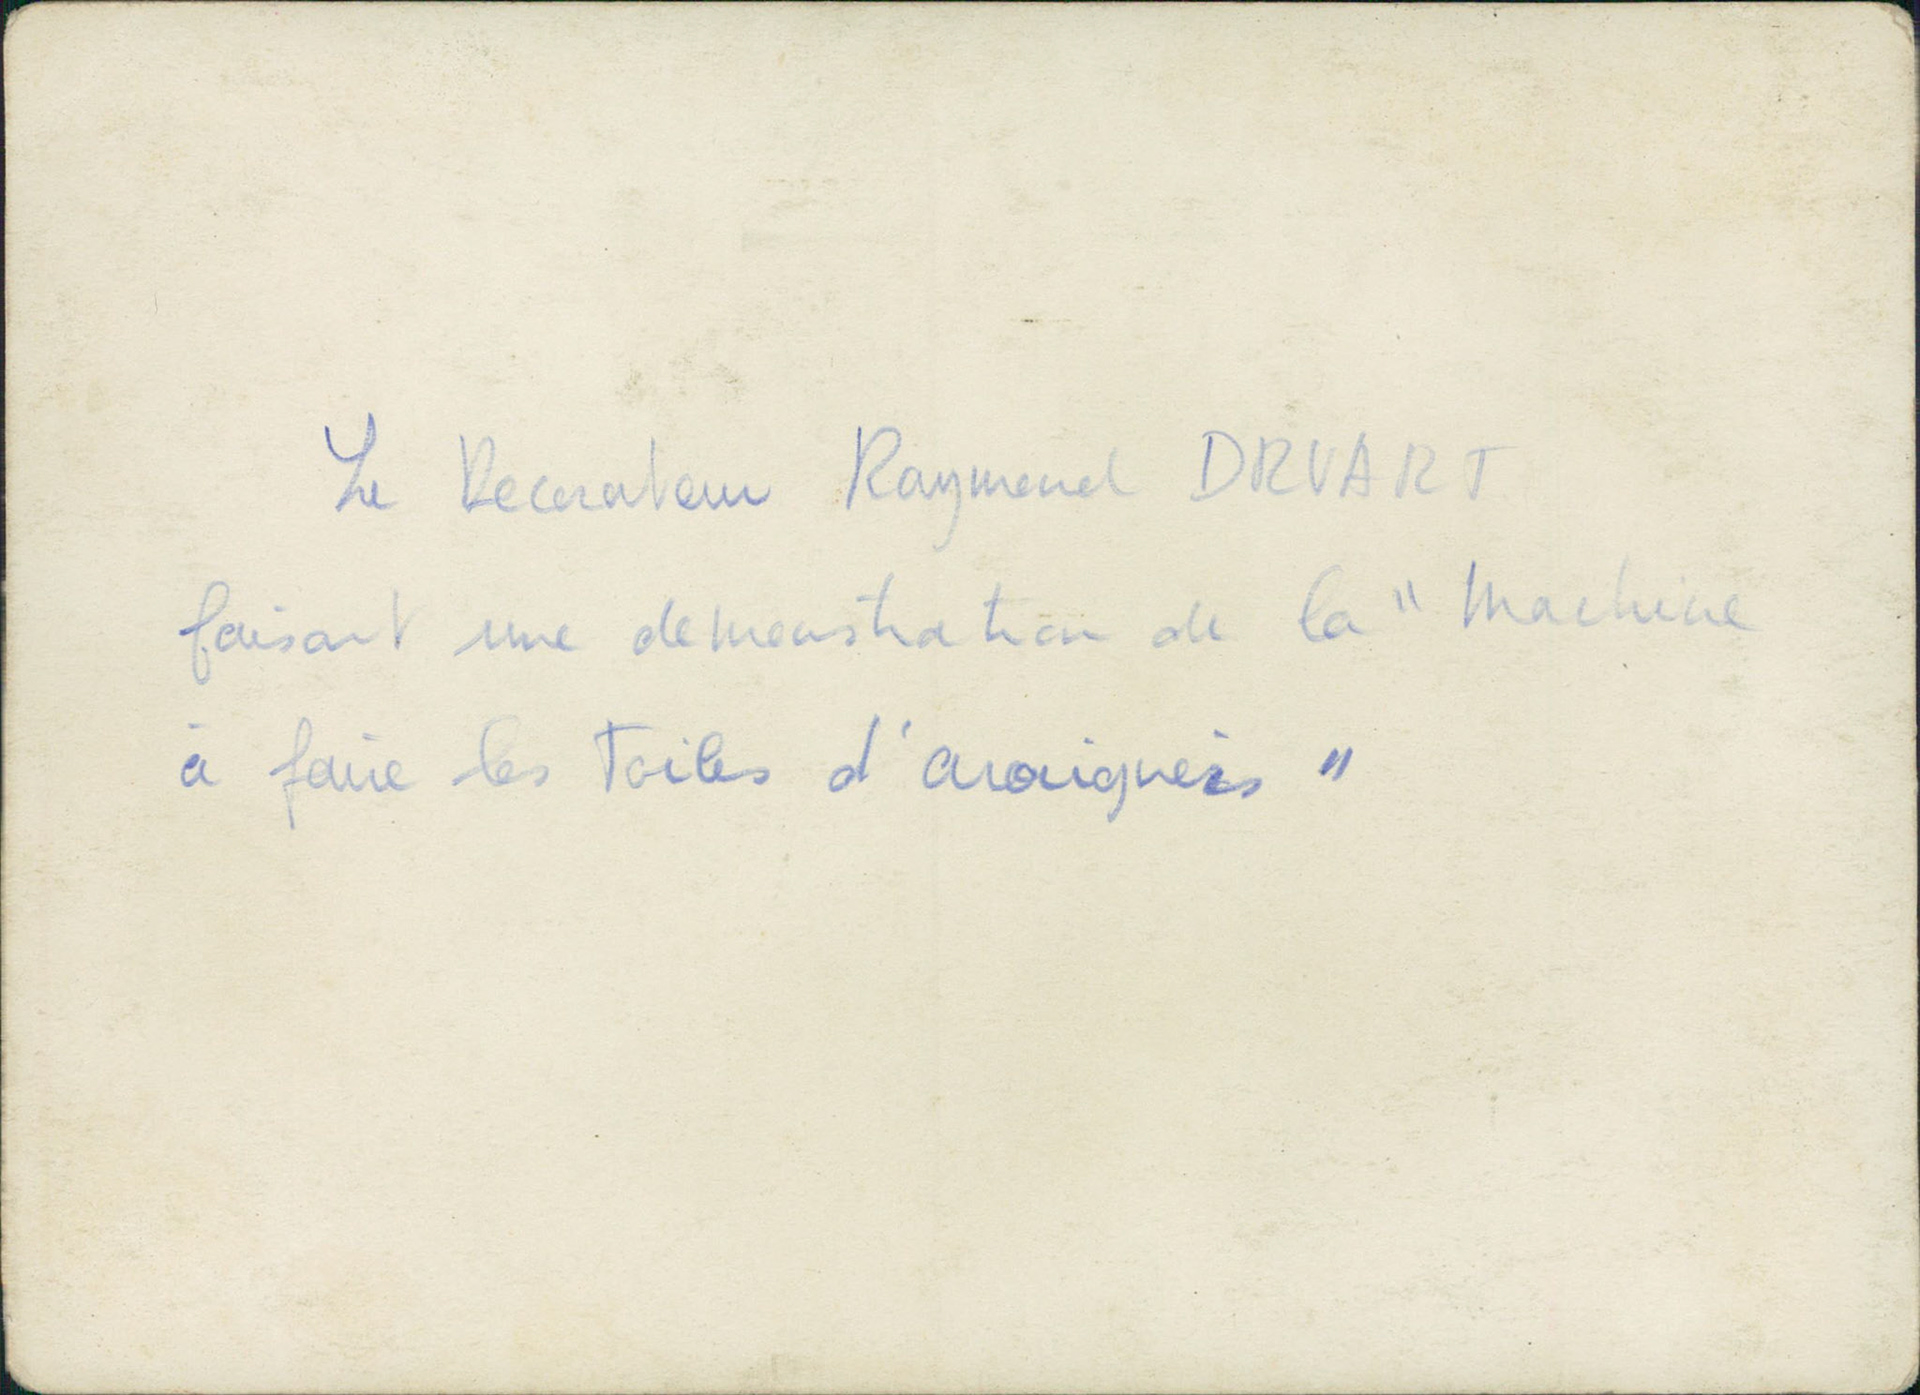 Le Decorateur Raymond DRUART
faisant une demonstration de la "Machine
à faire les Toiles d'araignées"